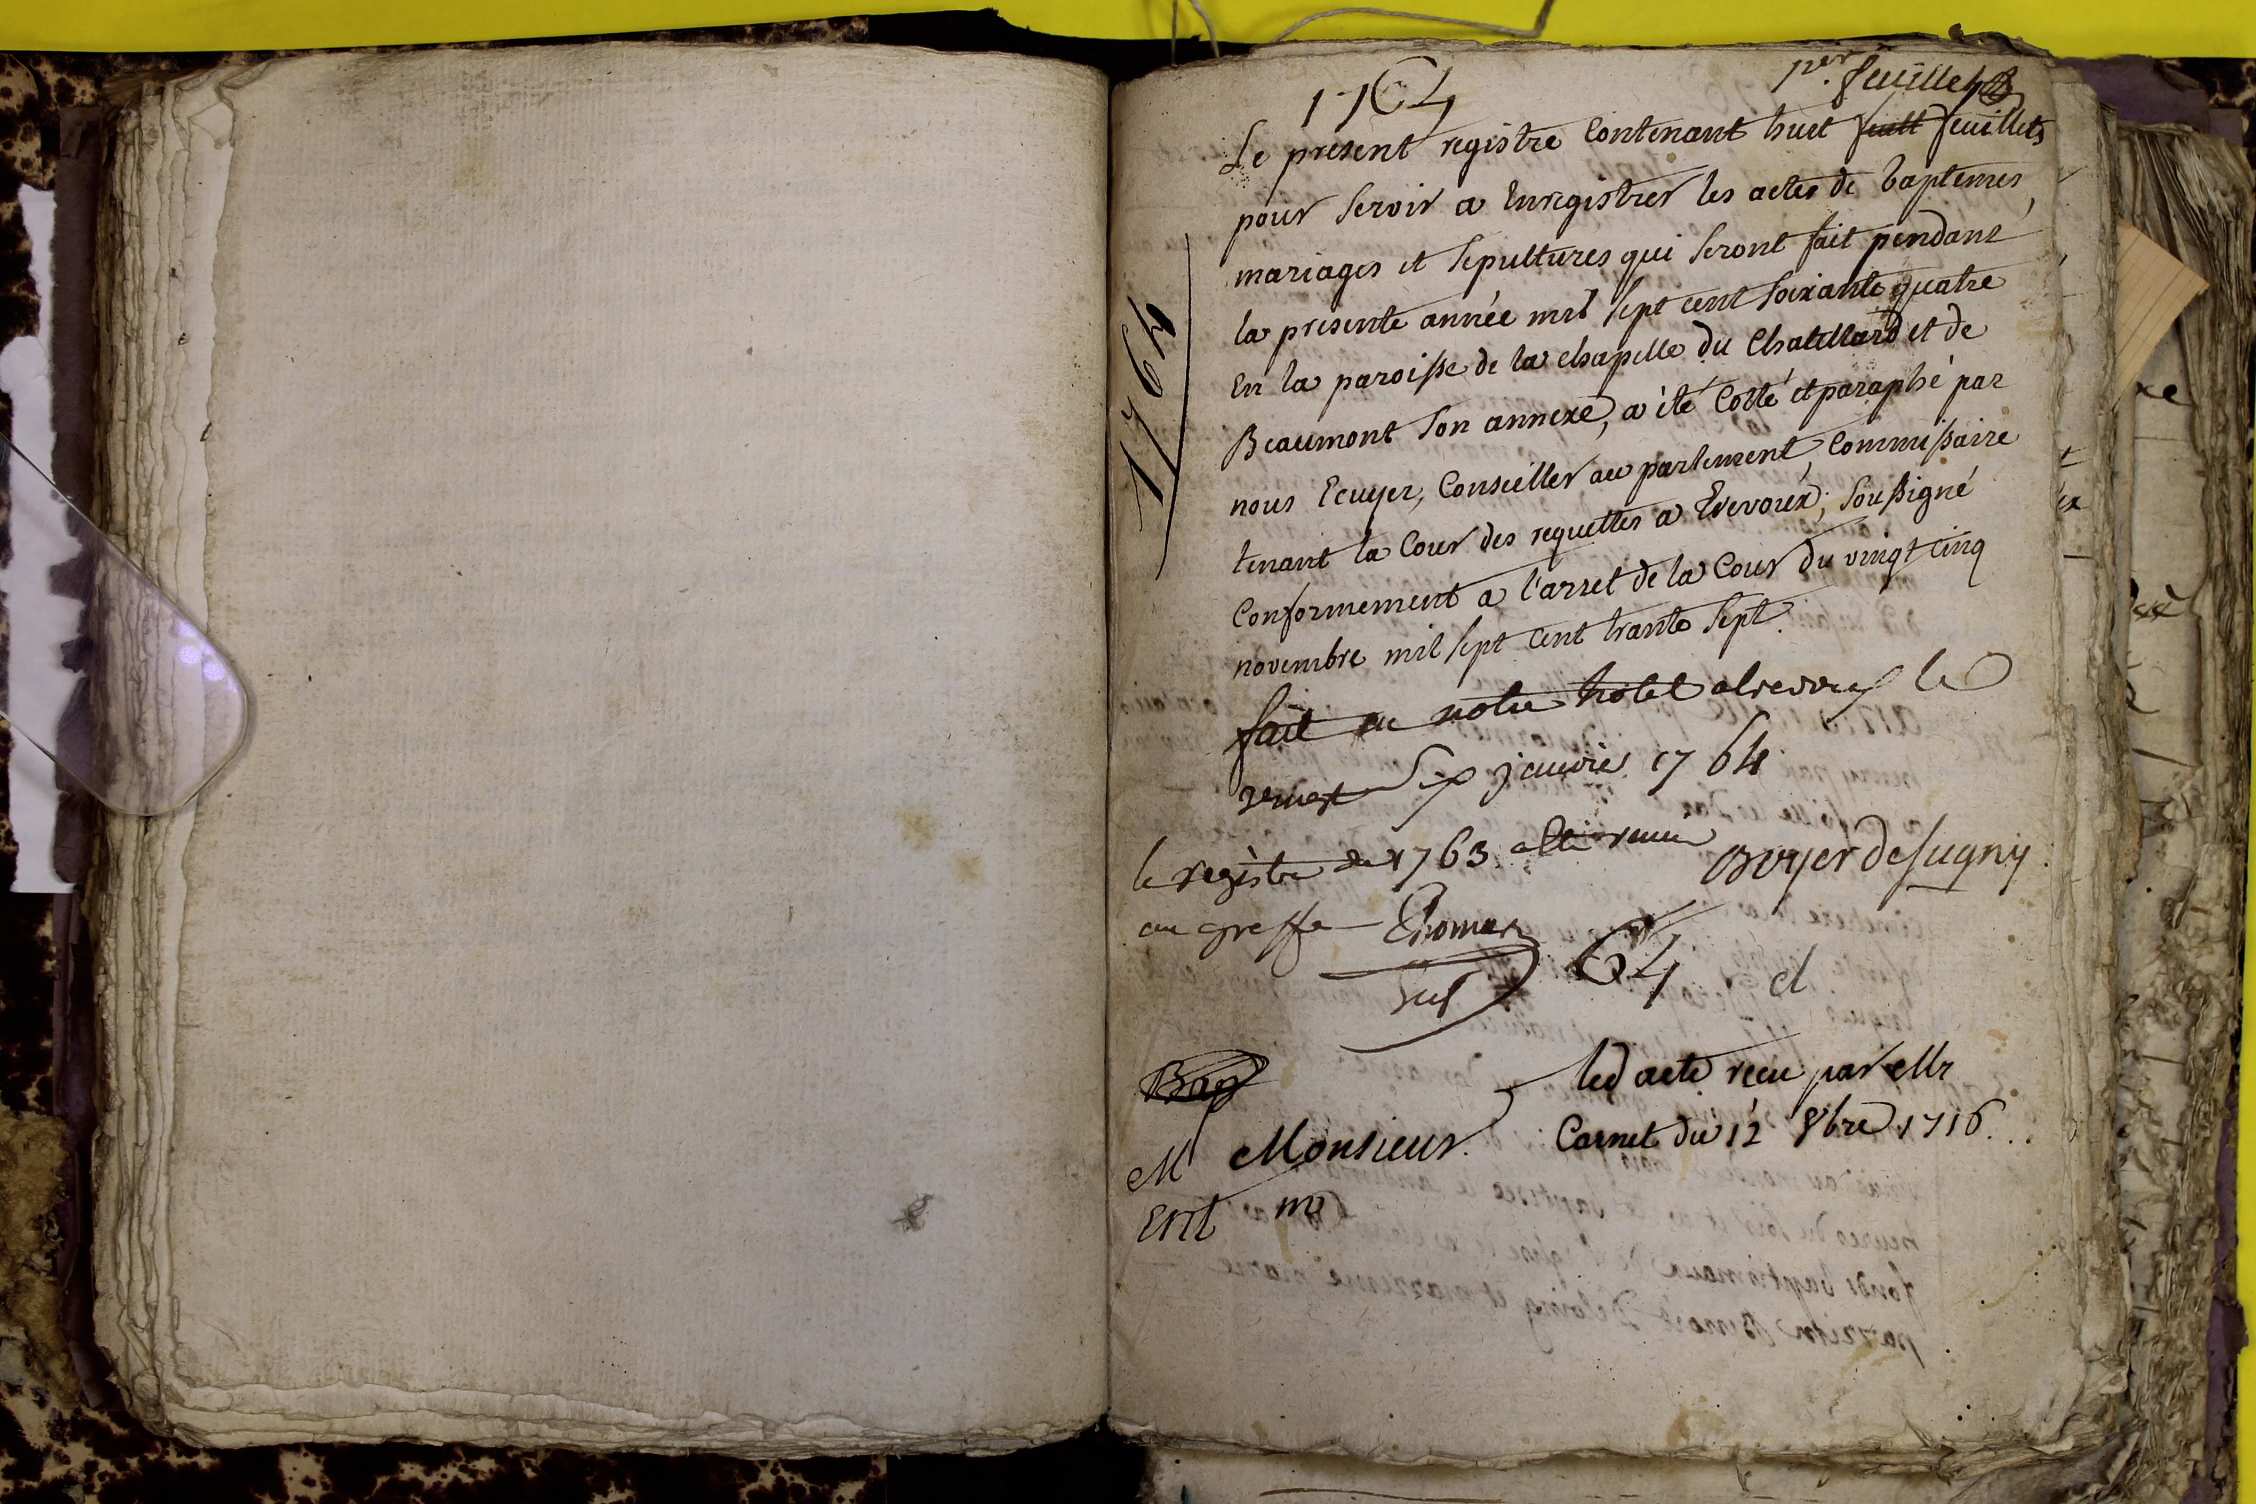 1764
per feuillet
Le present registre Contenant huit feuill feuillets
pour servir a Enregistrer les actes de baptemes,
mariages et sepultures qui seront fait pendant
la presente année mil sept cent soixante quatre
En la paroisse de la chapelle du Chatellard et de
Beaumont son annexe, a été Cotté et paraphé par
nous Ecuyer, Conseiller au parlement, Commissaire
tenant la Cour des requettes a Trevoux, soussigné
Conformement a l'arret de la Cour du vingt cinq
novembre mil sept cent trante sept.
fait en notre hotel a trevoux le
six janvier 1764
1764
le registre de 1763 a été remis
au greffe
Boyer de Sugny
64
led acte recu par Mr
Carnet du 12 8bre 1716...
M Monsieur
m